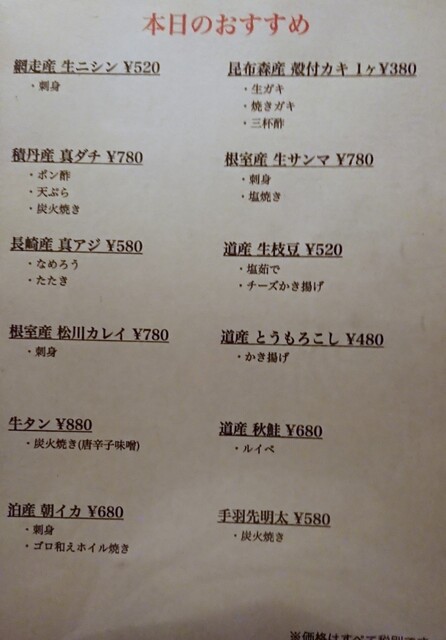 本日のおすすめ
網走産 生ニシン ¥520
・刺身
積丹産 真ダチ ¥780
・ポン酢
・天ぷら
・炭火焼き
長崎産 真アジ ¥580
・なめろう
・たたき
根室産 松川カレイ ¥780
・刺身
牛タン ¥880
・炭火焼き(唐辛子味噌)
泊産 朝イカ ¥680
・刺身
・ゴロ和えホイル焼き
昆布森産 殻付カキ 1ヶ¥380
・生ガキ
・焼きガキ
・三杯酢
根室産 生サンマ ¥780
・刺身
・塩焼き
道産 生枝豆 ¥520
・塩茹で
・チーズかき揚げ
道産 とうもろこし ¥480
・かき揚げ
道産 秋鮭 ¥680
・ルイベ
手羽先明太 ¥580
・炭火焼き
※価格はすべて税別です